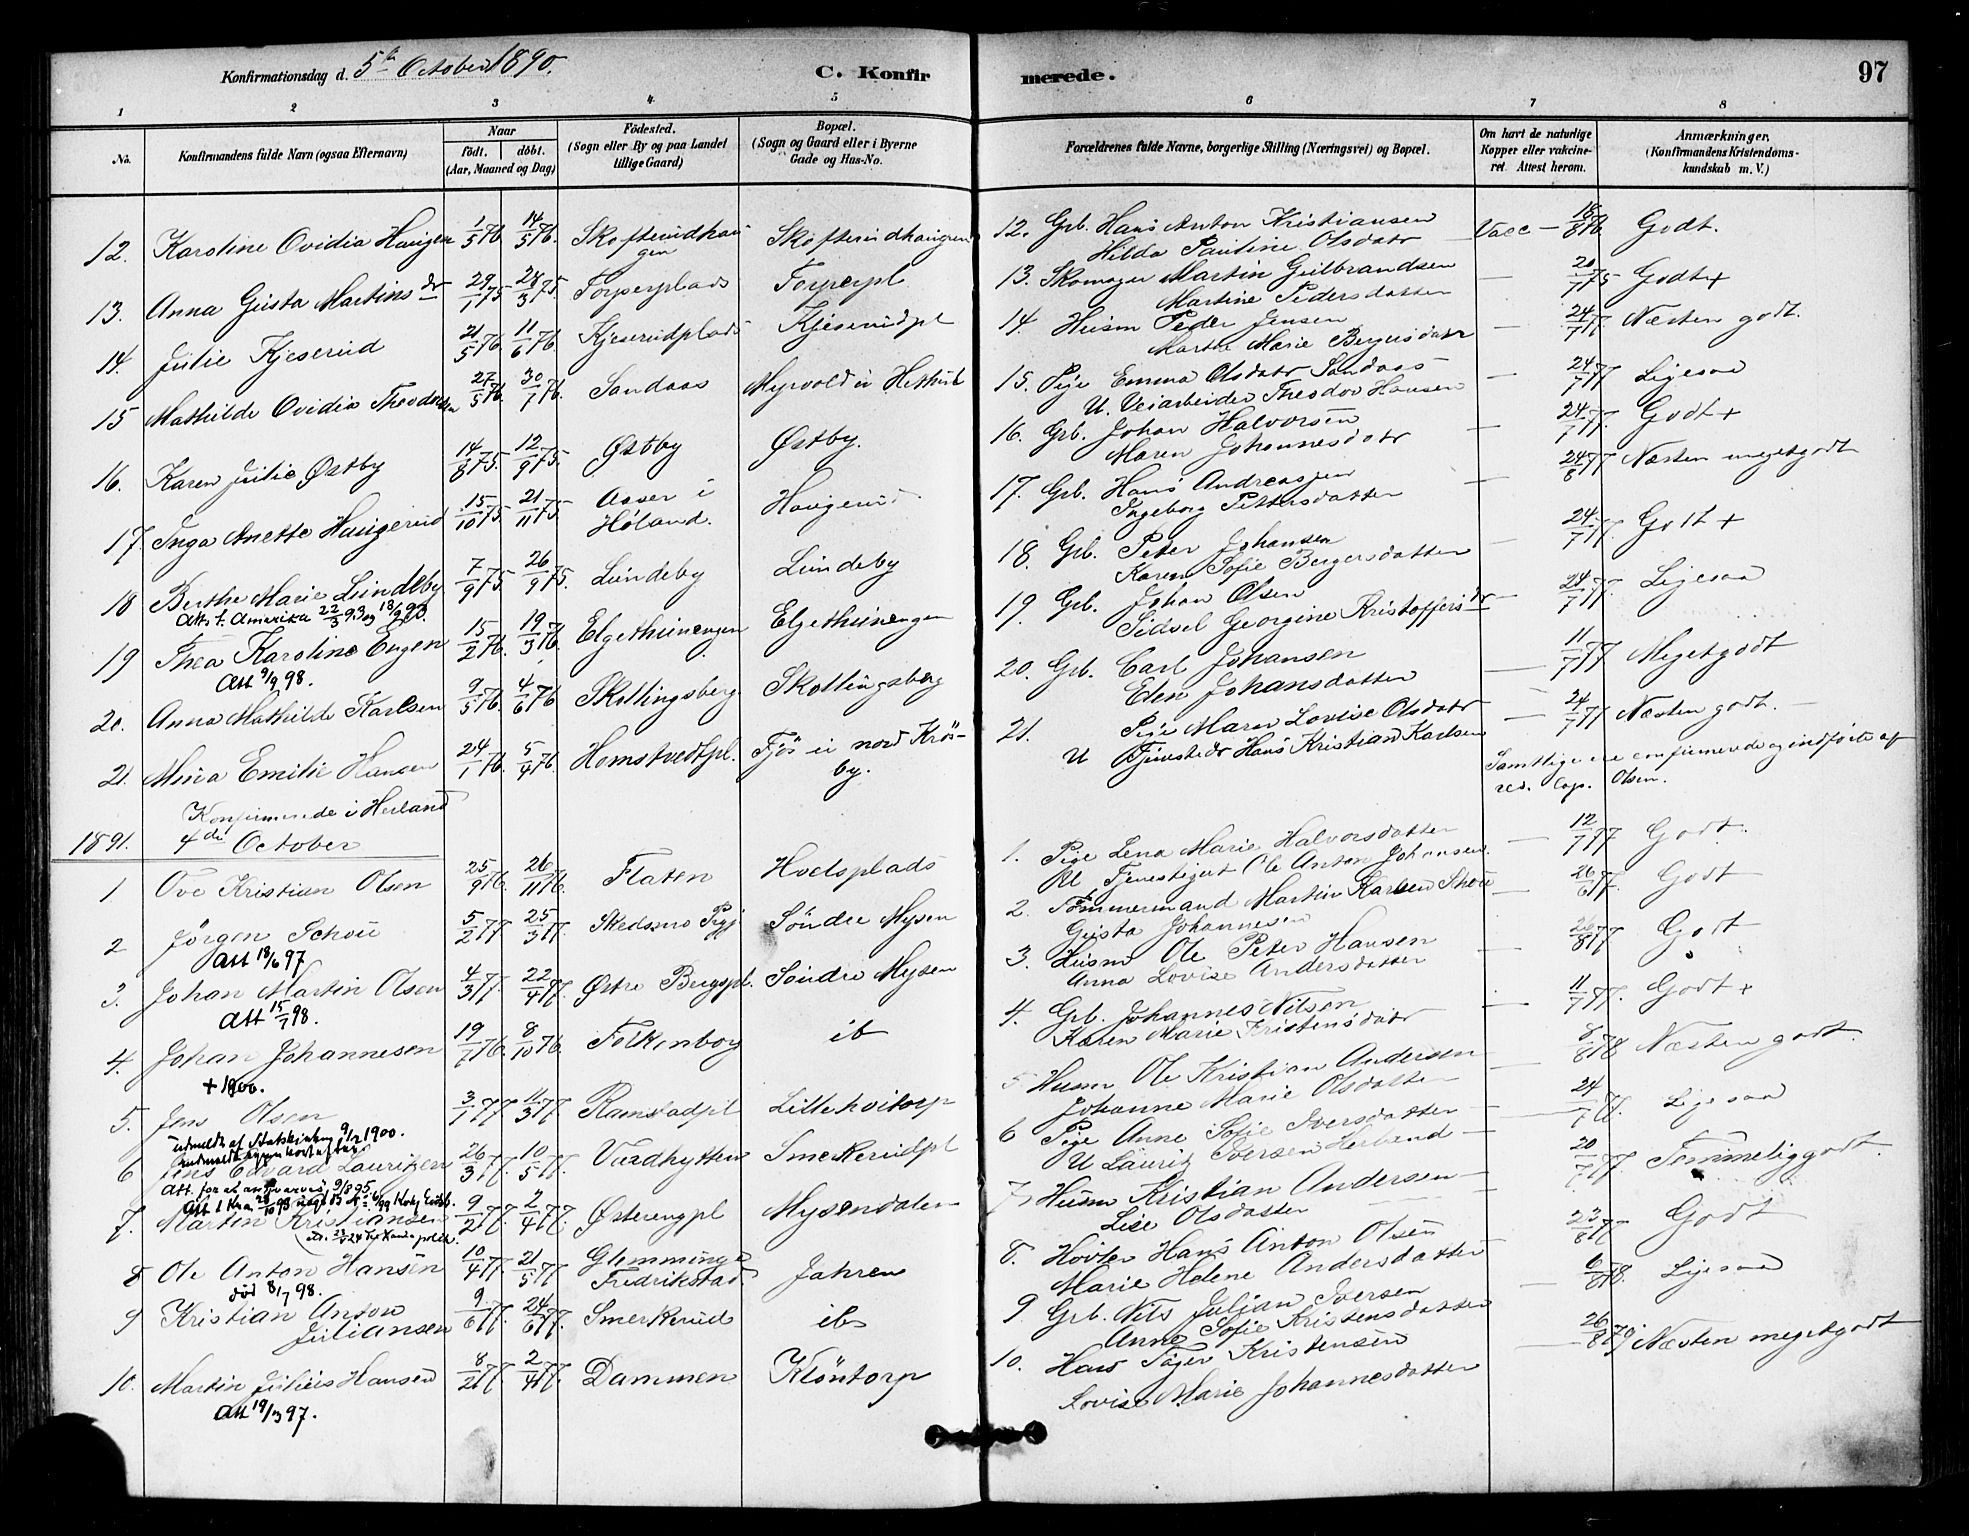 Konfirmationsdag d. 5te October 1890.
C. Konfirmerede.
97
1 2 3 4 5 6 7 8
No.
Konfirmandens fulde Navn (ogsaa Efternavn)
Naar
födt. döbt.
(Aar, Maaned og Dag)
Födested.
(Sogn eller By og paa Landet
tillige Gaard)
Bopæl.
(Sogn og Gaard eller i Byerne
Gade og Hus-No.
Forældrenes fulde Navne, borgerlige Stilling (Næringsvei) og Bopæl.
Om havt de naturlige
Kopper eller vakcine-
ret. Attest herom.
Anmærkninger,
(Konfirmandens Kristendoms-
kundskab m. V.)
12. Karoline Ovidia Haugen 1/5 76 14/5 76. Skofterudhaugen Skofterudhaugen
13. Anna Gusta Martinsdr 29/1 75 28/3 75. Torperplads Torperpl
14. Julie Kjeserud 21/5 76. 11/6 76. Kjeserudplads Kjeserudpl
15 Mathilde Ovidia Theodorsen 27/5 76. 30/7 76. Sandaas Myrvold
16. Karen Julie Østby 14/8 75. 12/9 75. Østby Østby.
17. Inga Anette Haugerud 15/10 75 21/11 75. Aaser i Høland. Haugerud
18 Berthe Marie Lundeby 7/9 75 26/9 75. Lundeby Lundeby
Att. t. Amerika 22/3 93
19 Thea Karoline Engen 15/2 76. 19/3 76. Elgethunengen Elgethunengen
Att 9/9 98.
20. Anna Mathilde Karlsen 9/5 76. 4/6 76 Skottingsberg Skottingsberg
21. Mina Emilie Hansen 24/1 76. 5/4 76. Homstvedtpl. Fjøs
Konfirmerede i Herland
1891. 4de October
1 Ove Kristian Olsen 25/9 76. 26/11 76. Flaten Hoelsplads
2 Jörgen Schou 5/2 77 25/3 77. Skedsmo Søndre Mysen
Att 18/6 97
3. Johan Martin Olsen 4/3 77. 22/4 77. Østre Bergspl. Søndre Mysen
Att 15/7 98.
4. Johan Johannesen 19/7 76. 8/10 76. Folkenborg ib
+ 1900.
5. Jens Olsen 3/1 77 11/3 77 Ramstadpl Lille hvitorp
udmeldt af Statskirken 9/2 1900.
6 Jens Edvard Lauritzen 26/3 77. 10/5 77. Vardhytten Smerkerudpl
7. Martin Kristiansen 9/2 77. 2/4 77. Østerengpl Mysendalen
8 Ole Anton Hansen 10/4 77. 21/5 77 Glemminge Fredrikstad Jahren
död 8/7 98.
9 Kristian Anton Juliansen 9/6 77. 24/6 77. Smerkerud ib
10. Martin Julius Hansen 8/2 77. 2/4 77. Dammen Kløntorp
Att 19/3 97.
12. Grb. Hans Anton Kristiansen Vacc — 18/8 76 Godt.
Hilda Pauline Olsdatr
13. Skomager Martin Gulbrandsen — 20/7 75 Godt+
Martine Pedersdatter
14. Husm Peder Jensen — 24/7 77. Næsten godt.
Marthe Marie Bergersdatr
15. Pige Emma Olsdatr Sandaas — 24/7 77 Ligesaa
U. Veiarbeider Theodor Hansen
16. Grb. Johan Halvorsen — 24/7 77. Godt +
Maren Johannesdatr
17. Grb. Hans Andreassen — 24/8 77 Næsten megetgodt
Ingeborg Pettersdatter
18. Grb. Peter Johansen — 24/7 77. Godt +
Karen Sofie Bergersdatter
19. Grb. Johan Olsen — 24/7 77 Ligesaa
Sidsel Georgine Kristoffersdr
20. Grb. Carl Johansen — 11/7 77 Megetgodt
Elen Johansdatter
21. Pige Maren Lovise Olsdatr — 24/7 77 Næsten godt.
U Tjenstedr Hans Kristian Karlsen
Samtlige ere confirmerede og indførte af
res. Cap. Olsen.
1. Pige Lena Marie Halvorsdatter — 12/7 77 Godt.
U. Tjenestegut Ole Anton Johansen.
2. Tømmermand Martin Karlsen Schou — 26/6 77. Godt
Gusta Johannesen
3. Husm Ole Peter Hansen 26/8 77 Godt
Anna Lovise Andersdatter
4. Grb. Johannes Nilsen — 11/7 77. Godt +
Karen Marie Kristensdatr
5 Husm Ole Kristian Andersen 8/8 78 Næsten godt.
Johanne Marie Olsdatter
6 Pige Anne Sofie Iversdatter — 24/7 77. Ligesaa
U Lauritz Iversen Herland
7 Husm Kristian Andersen — 20/7 77 Temmeliggodt.
Lise Olsdatter
8. Hans Anton Olsen 23/8 77 Godt
Marie Helene Andersdatter
9 Grb. Nils Julian Iversen — 6/8 78. Ligesaa
Anne Sofie Kristensdatter
10. Hans Kristensen — 26/8 79 Næsten megetgodt
Lovise Marie Johannesdatter